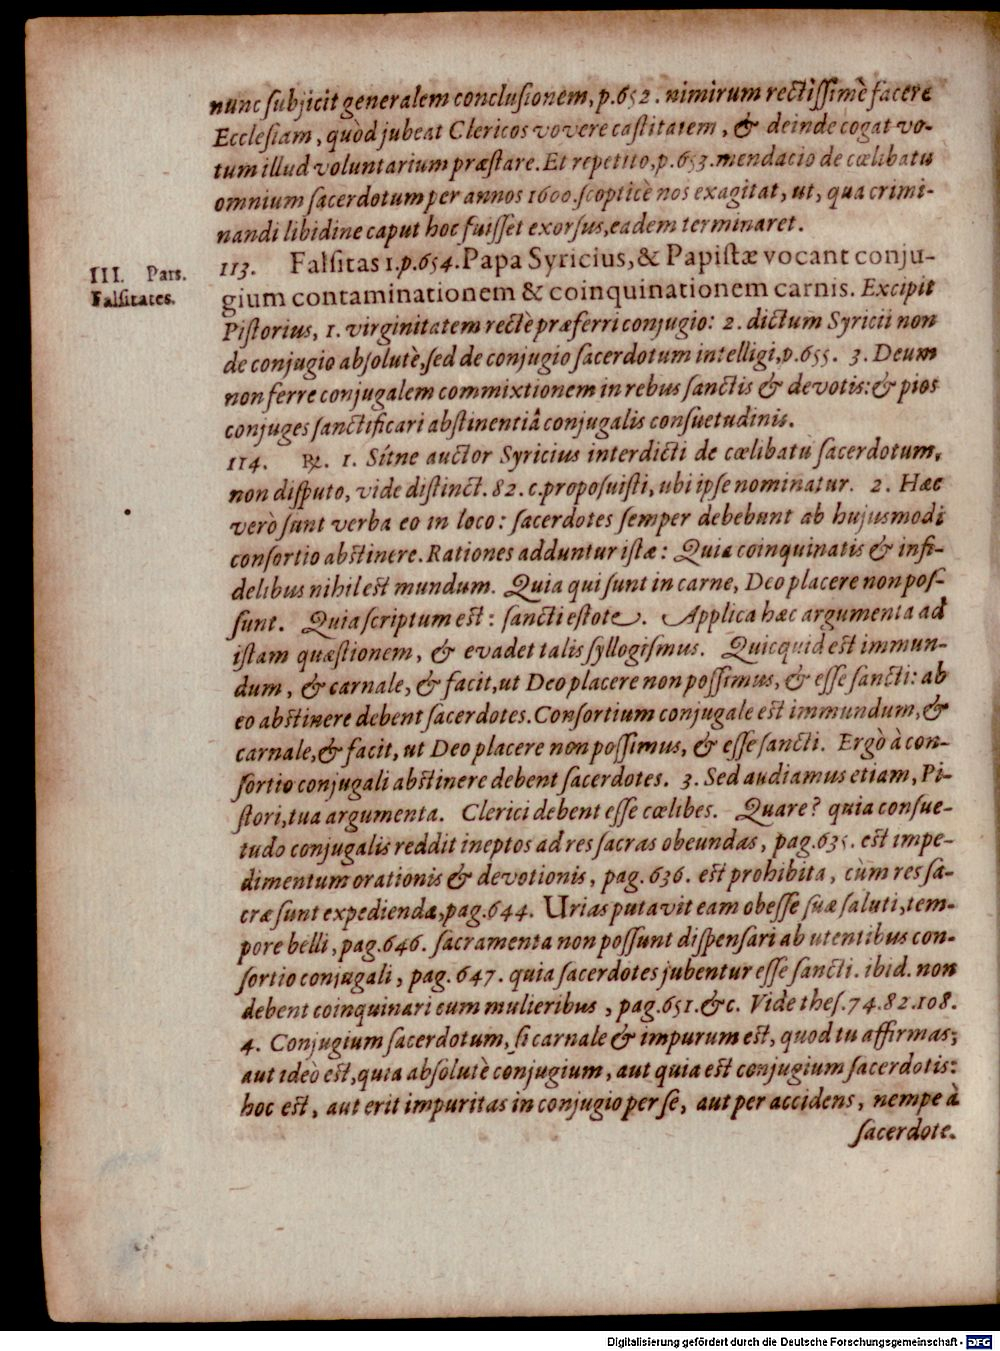 nunc subjicit generalem conclusionem, p.652. nimirum rectissimè facere
Ecclesiam, quòd jubeat Clericos vovere castitatem, & deinde cogat vo-
tum illud voluntarium præstare. Et repetito, p.653. mendacio de cœlibatu
omnium sacerdotum per annos 1600. scopticè nos exagitat, ut, qua crimi-
nandi libidine caput hoc fuisset exorsus, eadem terminaret.
III. Pars.
Falsitates.
113. Falsitas 1.p.654. Papa Syricius, & Papistæ vocant conju-
gium contaminationem & coinquinationem carnis. Excipit
Pistorius, 1. virginitatem rectè præferri conjugio: 2. dictum Syricii non
de conjugio absolutè, sed de conjugio sacerdotum intelligi, p.655. 3. Deum
non ferre conjugalem commixtionem in rebus sanctis & devotis: & pios
conjuges sanctificari abstinentiâ conjugalis consuetudinis.
114. ℞. 1. Sítne auctor Syricius interdicti de cœlibatu sacerdotum,
non disputo, vide distinct. 82. c. proposuisti, ubi ipse nominatur. 2. Hæc
verò sunt verba eo in loco: sacerdotes semper debebunt ab hujusmodi
consortio abstinere. Rationes adduntur istæ: Quia coinquinatis & infi-
delibus nihil est mundum. Quia qui sunt in carne, Deo placere non pos-
sunt. Quia scriptum est: sancti estote. Applica hæc argumenta ad
istam quæstionem, & evadet talis syllogismus. Quicquid est immun-
dum, & carnale, & facit, ut Deo placere non possimus, & esse sancti: ab
eo abstinere debent sacerdotes. Consortium conjugale est immundum, &
carnale, & facit, ut Deo placere non possimus, & esse sancti. Ergò à con-
sortio conjugali abstinere debent sacerdotes. 3. Sed audiamus etiam, Pi-
stori, tua argumenta. Clerici debent esse cœlibes. Quare? quia consue-
tudo conjugalis reddit ineptos ad res sacras obeundas, pag.635. est impe-
dimentum orationis & devotionis, pag. 636. est prohibita, cùm res sa-
cræ sunt expediendæ, pag.644. Urias putavit eam obesse suæ saluti, tem-
pore belli, pag.646. sacramenta non possunt dispensari ab utentibus con-
sortio conjugali, pag. 647. quia sacerdotes jubentur esse sancti. ibid. non
debent coinquinari cum mulieribus, pag.651. &c. Vide thes.74.82.108.
4. Conjugium sacerdotum, si carnale & impurum est, quod tu affirmas;
aut ideò est, quia absolutè conjugium, aut quia est conjugium sacerdotis:
hoc est, aut erit impuritas in conjugio per se, aut per accidens, nempe à
sacerdote.
Digitalisierung gefördert durch die Deutsche Forschungsgemeinschaft - DFG